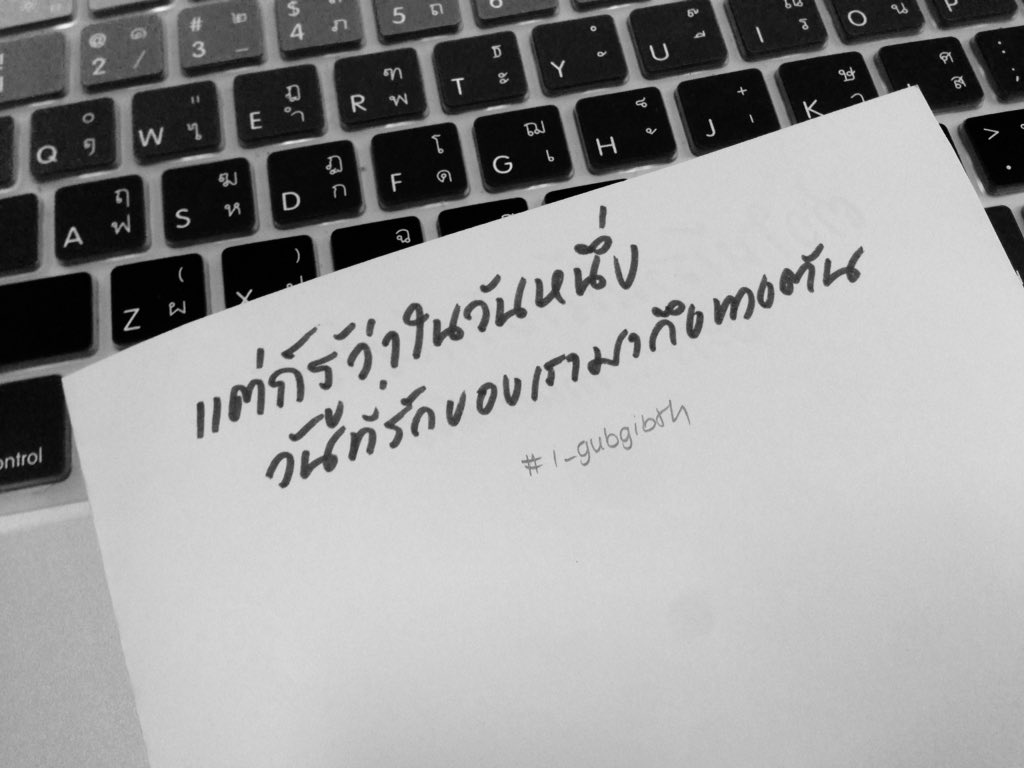 @ ๒ 2 /
# ๒ 3 _
$ 4 ภ
5 ถ
6
Q ๐ ๆ
W " ไ
E ฎ ำ
R ฑ พ
T ธ ะ
Y
U
I ร
O น
P
A ฤ ฟ
S ฆ ห
D ฏ ก
F โ ด
G ฌ เ
H
J
K ษ า
ศ ส
> .
Z ( ผ
X ) ป
ฉ
control
แต่ก็รู้ว่าในวันหนึ่ง
วันที่รักของเรามาถึงทางตัน
#i_gubgibth